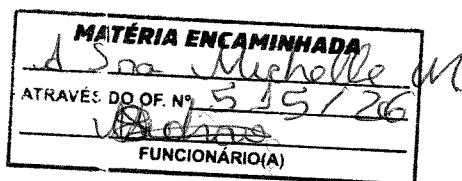 MATÉRIA ENCAMINHADA
A Sra Michelle M
ATRAVÉS DO OF. Nº 515/26
FUNCIONÁRIO(A)